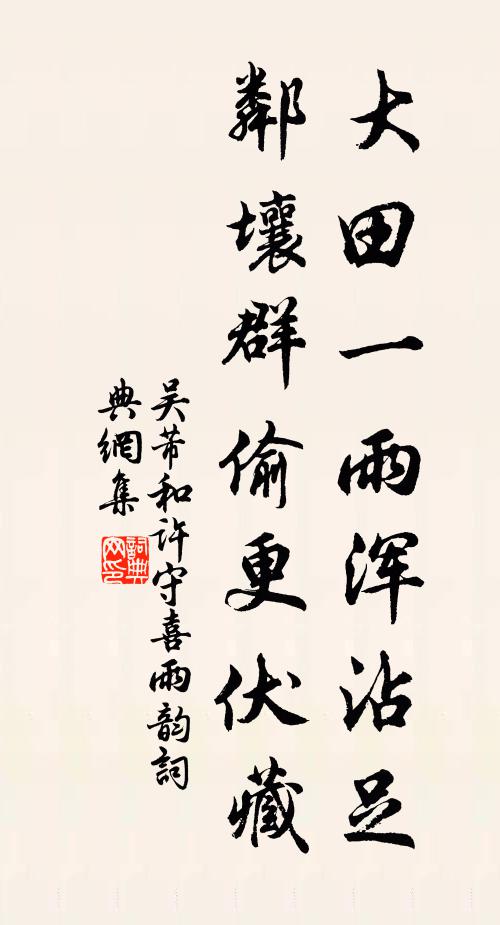 大田一雨浑沾足
鄰壤群偷更伏藏
吴芾和许守喜雨韵詞
典網集
詞典
网印